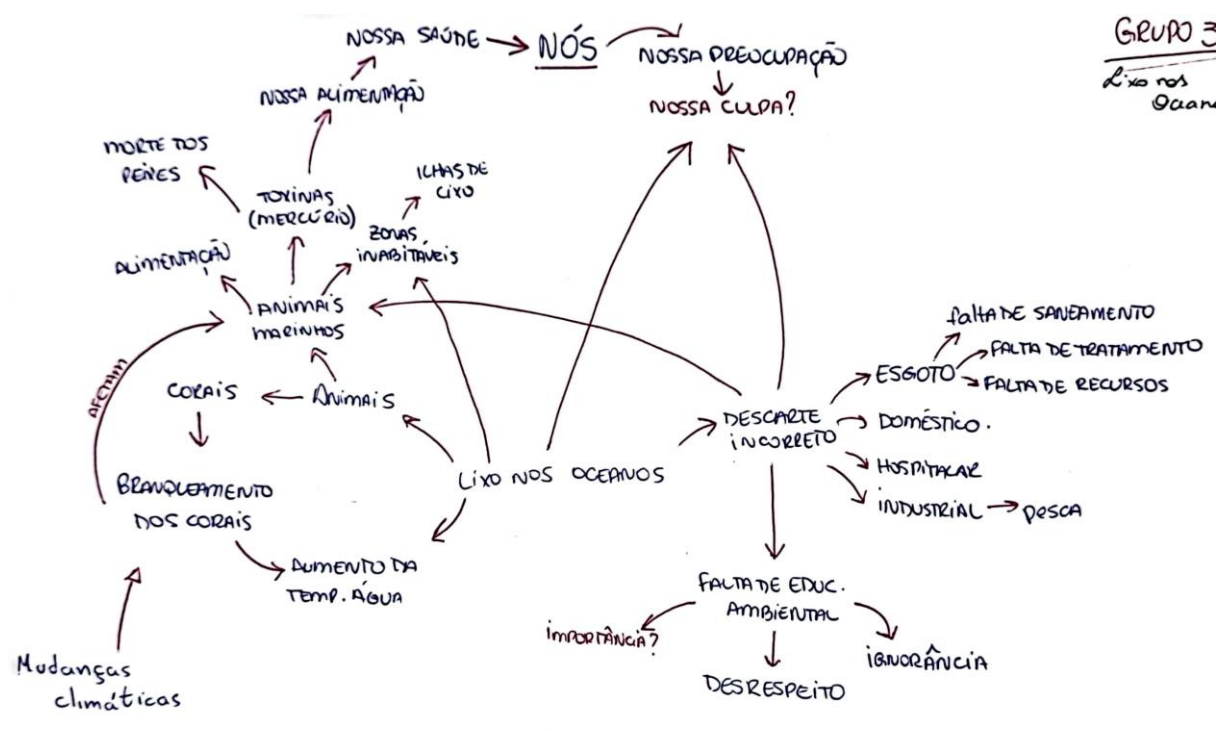 GRUPO 3
Lixo nos
NOSSA SAÚDE
NÓS
NOSSA PREOCUPAÇÃO
NOSSA CULPA?
NOSSA ALIMENTAÇÃO
MORTE DOS
PEIXES
TOXINAS
(MERCÚRIO)
ILHAS DE
LIXO
ZONAS
INABITÁVEIS
ALIMENTAÇÃO
ANIMAIS
MARINHOS
AFETAM
CORAIS
ANIMAIS
BRANQUEAMENTO
DOS CORAIS
LIXO NOS OCEANOS
AUMENTO DA
TEMP. ÁGUA
Mudanças
climáticas
DESCARTE
INCORRETO
ESGOTO
FALTA DE SANEAMENTO
FALTA DE TRATAMENTO
FALTA DE RECURSOS
DOMÉSTICO.
HOSPITALAR
INDUSTRIAL
PESCA
FALTA DE EDUC.
AMBIENTAL
IMPORTÂNCIA?
DESRESPEITO
IGNORÂNCIA